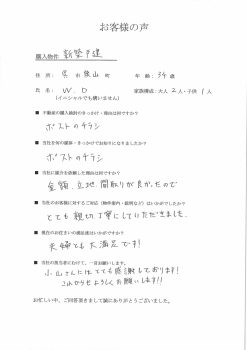 お客様の声
購入物件 新築戸建
住所：呉市焼山町 年齢：34歳
氏名：W.O 家族構成：大人2人・子供1人
(イニシャルでも構いません)
■ 不動産の購入検討のきっかけ・理由は何ですか？
ポストのチラシ
■ 当社を何の媒体・きっかけでお知りになりましたか？
ポストのチラシ
■ 当社に媒介を依頼した理由は何ですか？
金額、立地、間取りが良かったので
■ 当社のお客様に対するご対応（物件案内・説明など）はいかがでしたか？
とても親切丁寧にしていただきました。
■ 現在のお住まいの満足度はいかがですか？
夫婦とも大満足です!
■ 当社の担当者にむけて、一言お願いします。
小山さんにはとても感謝しております!!
これからもよろしくお願いします!!
お忙しい中、ご回答頂きまして誠にありがとうございました。